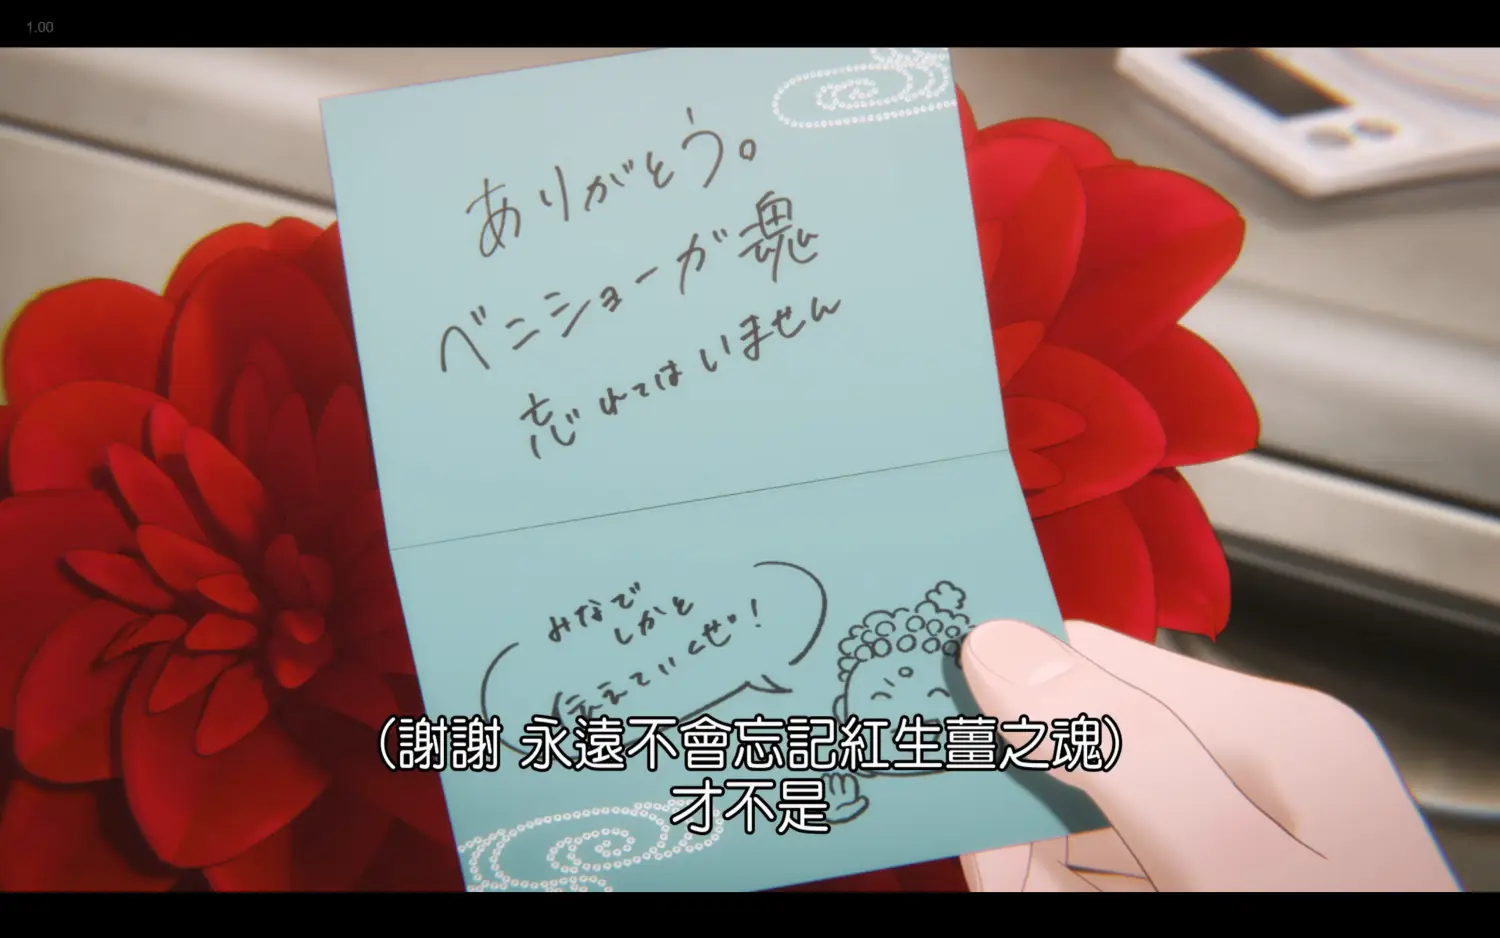 1.00
ありがとう。
ベニショーガ魂
忘れてはいません
みなで
しかと
伝えていくぜ!
(謝謝 永遠不會忘記紅生薑之魂)
才不是